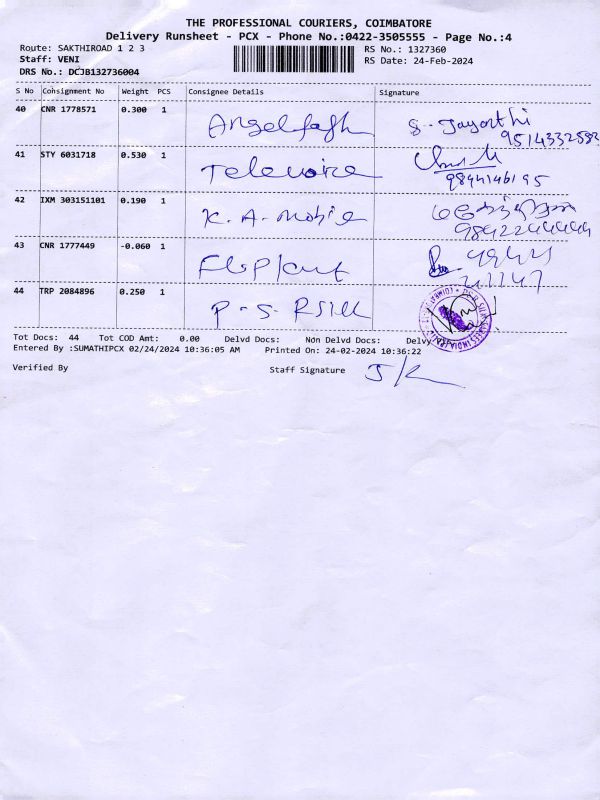 THE PROFESSIONAL COURIERS, COIMBATORE
Delivery Runsheet - PCX - Phone No.:0422-3505555 - Page No.:4
Route: SAKTHIROAD 1 2 3 RS No.: 1327360
Staff: VENI RS Date: 24-Feb-2024
DRS No.: DCJB132736004
S No Consignment No Weight PCS Consignee Details Signature
40 CNR 1778571 0.300 1 S. Jayanthi
9514332583
41 STY 6031718 0.530 1 Televoice
9894146195
42 IXM 303151101 0.190 1 K. A. Mobile
9842244444
43 CNR 1777449 -0.060 1
44 TRP 2084896 0.250 1 P. S. R Silk
Tot Docs: 44 Tot COD Amt: 0.00 Delvd Docs: Non Delvd Docs:
Entered By :SUMATHIPCX 02/24/2024 10:36:05 AM Printed On: 24-02-2024 10:36:22
Verified By Staff Signature